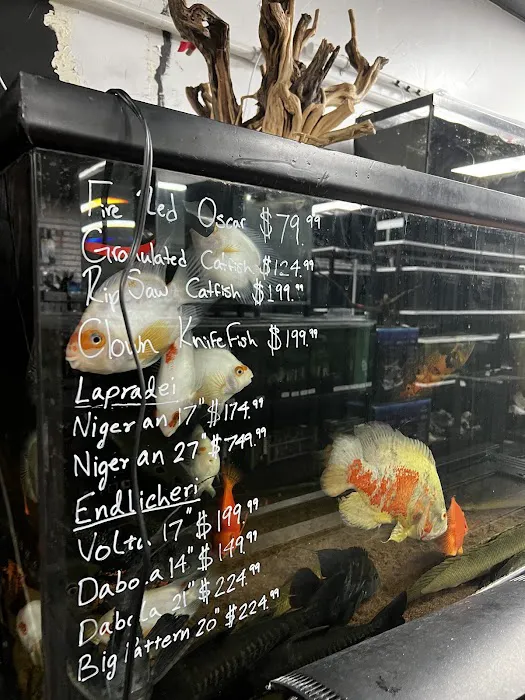 Fire Red Oscar $79.99
Granulated Catfish $124.99
Rip Saw Catfish $199.99
Clown KnifeFish $199.99
Lapradei
Nigerian 17" $174.99
Nigerian 27" $749.99
Endlicheri
Volta 17" $199.99
Dabola 14" $149.99
Dabola 21" $224.99
Big Pattern 20" $224.99